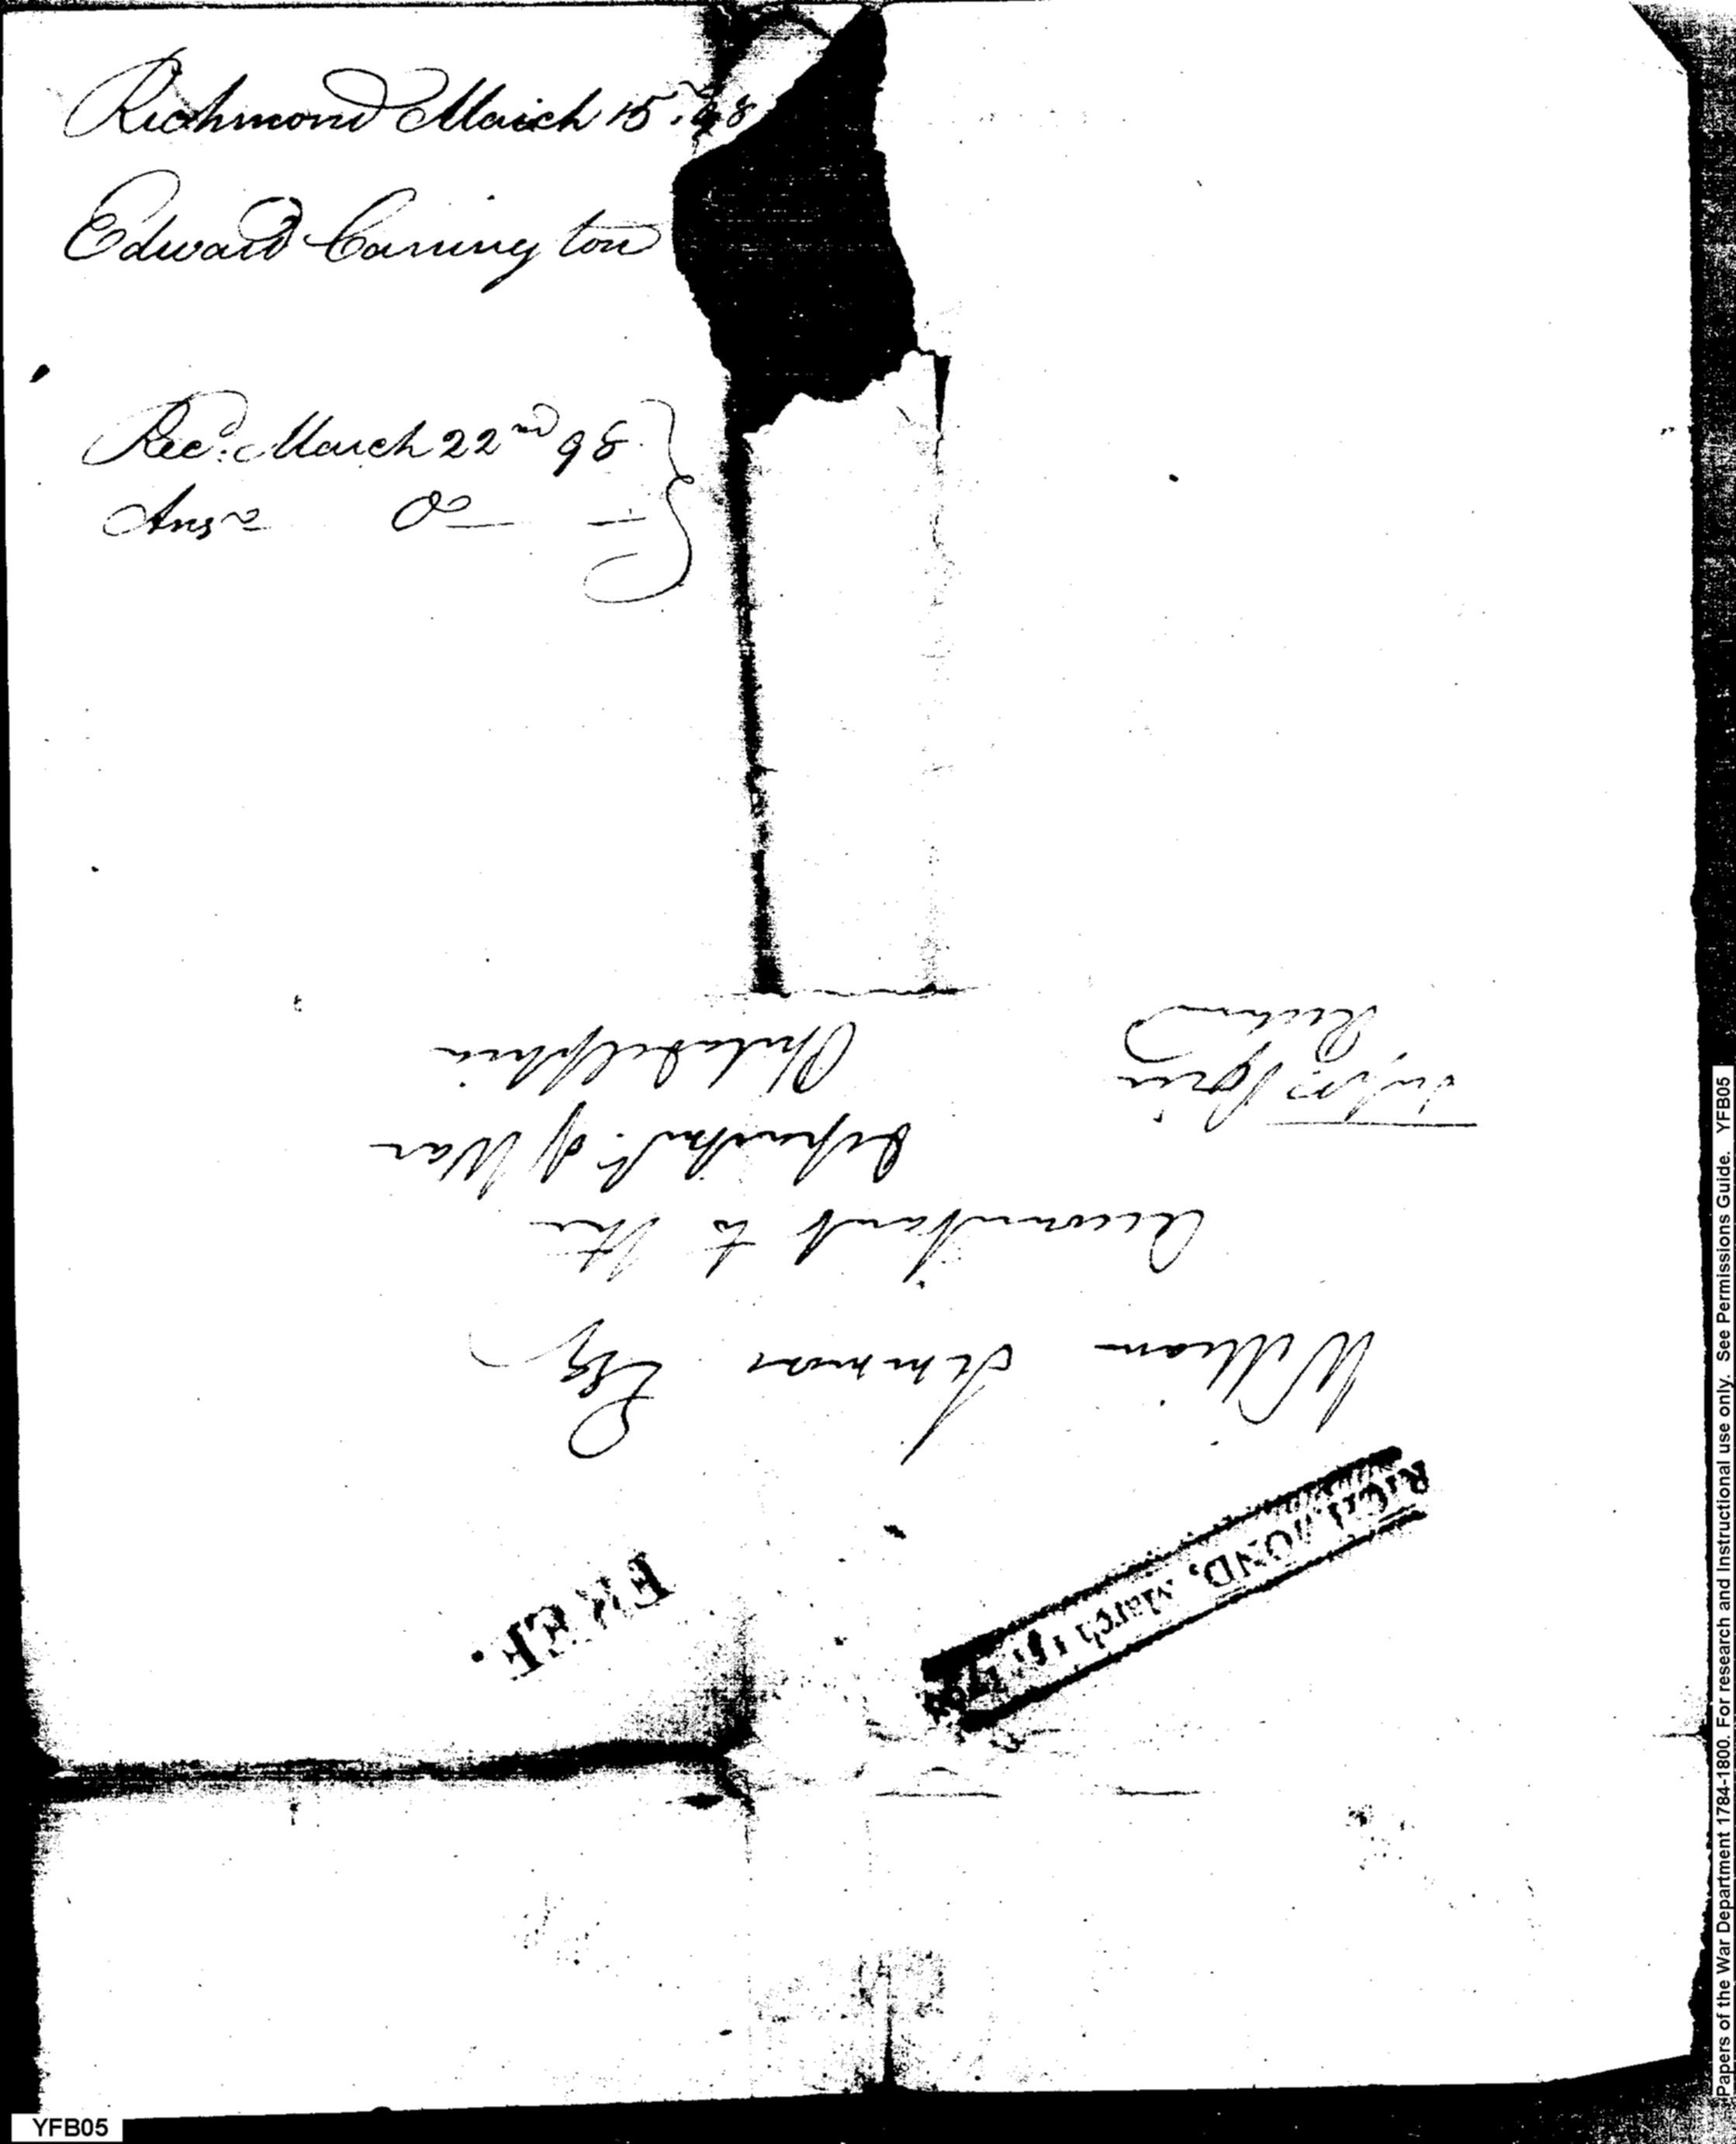 Richmond March 15. 98
Edward Carrington
Recd. March 22nd 98.
Ansr Do
FREE.
RICHMOND, March 1798
William Simmons Esqr
Accountant to the
Departmt. of War
Philadelphia
Richmd
Papers of the War Department 1784-1800. For research and Instructional use only. See Permissions Guide. YFB05
YFB05